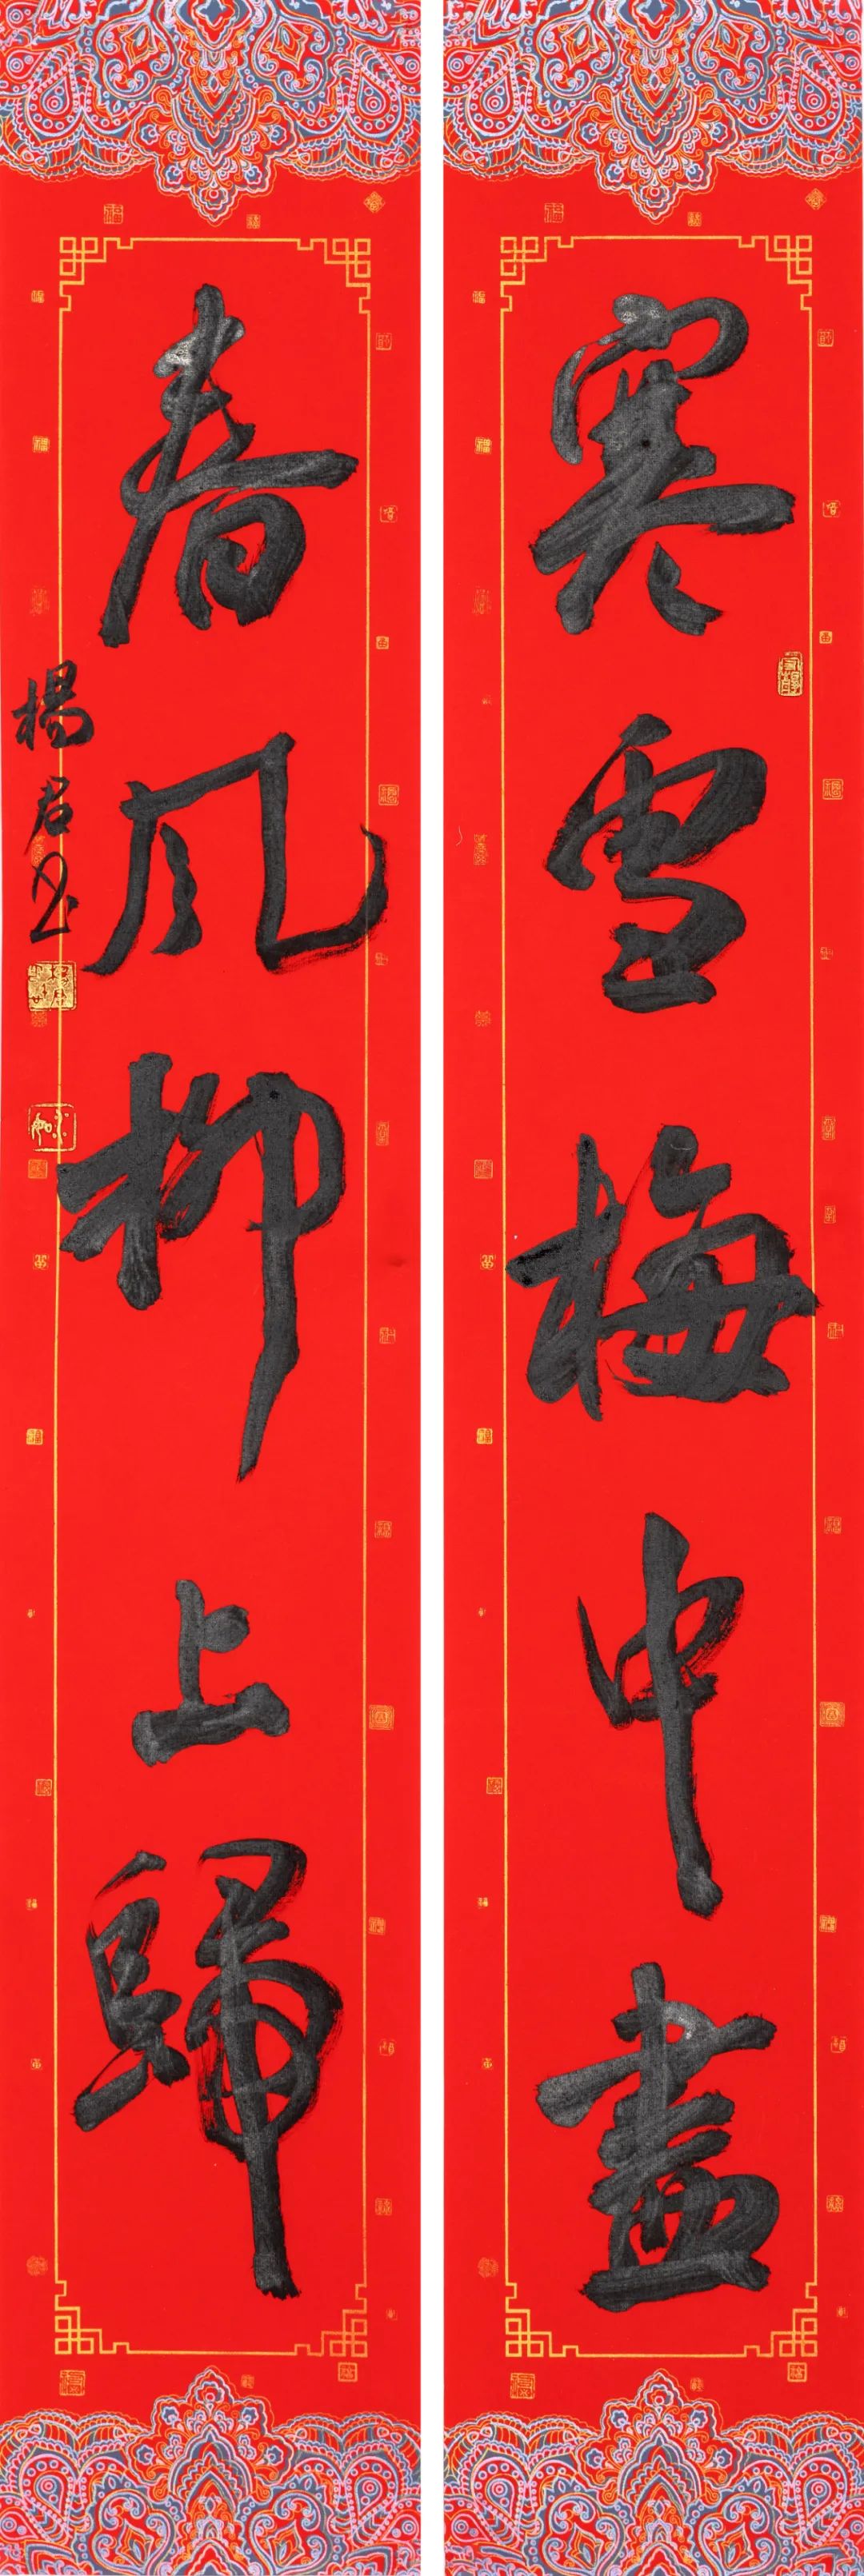 寒雪梅中盡
春風柳上歸
楊君書